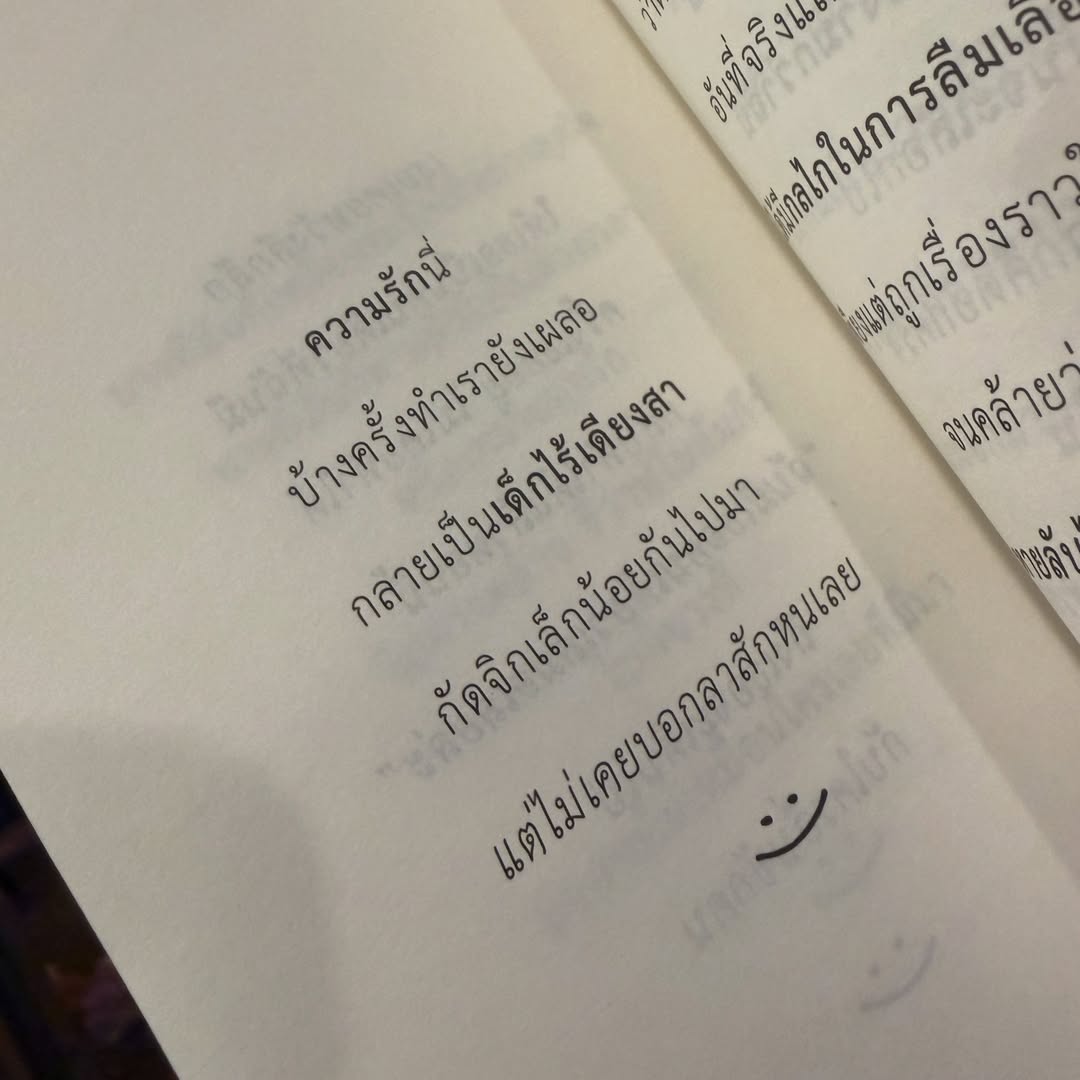 ความรักนี่
บ้างครั้งทำเรายังเผลอ
กลายเป็นเด็กไร้เดียงสา
กัดจิกเล็กน้อยกันไปมา
แต่ไม่เคยบอกลาสักหนเลย
อันที่จริงแ
มีกลไกในการลืมเลื
แต่ถูกเรื่องราว
จนคล้ายว่